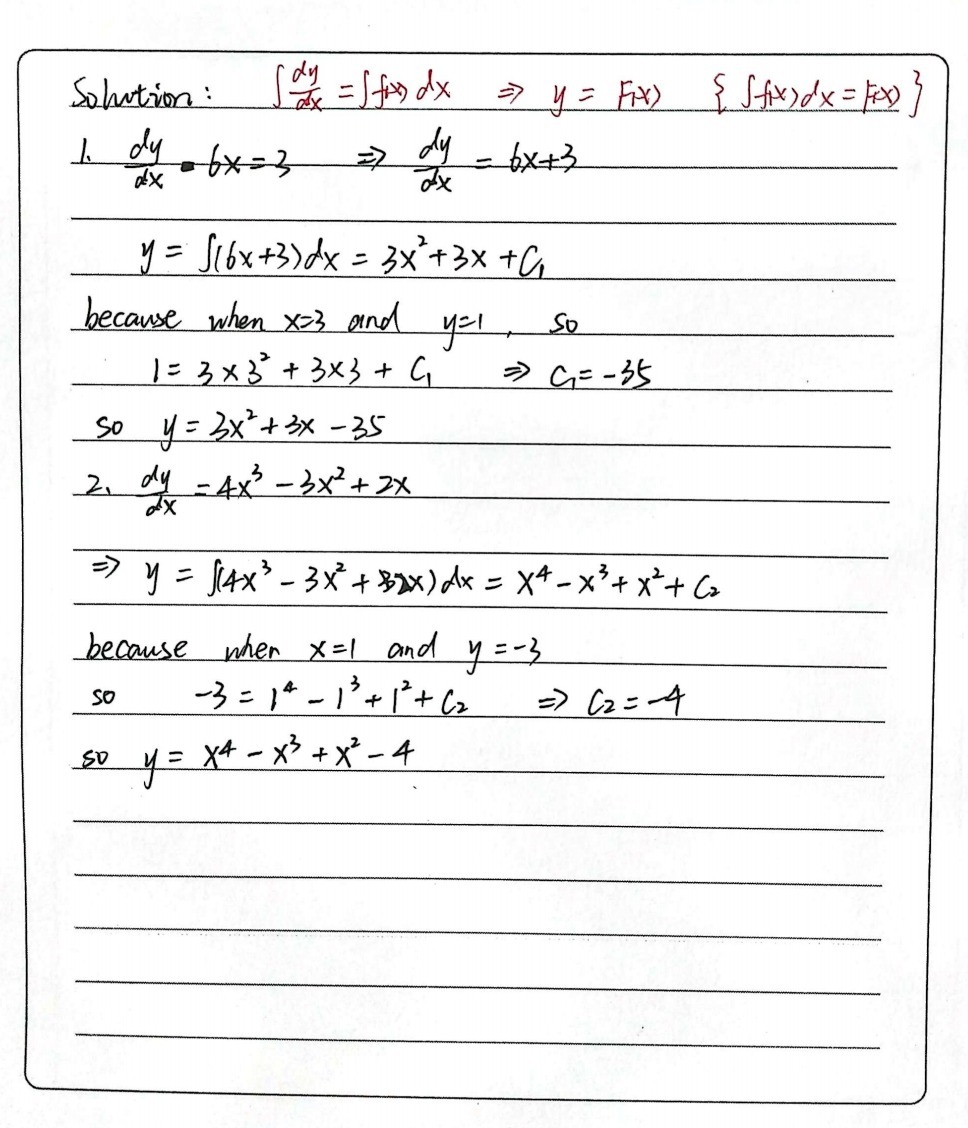 Solution: ∫dy/dx = ∫f(x) dx ⇒ y = F(x) { ∫f(x)dx = F(x) }
1. dy/dx - 6x = 3 ⇒ dy/dx = 6x+3
y = ∫(6x+3)dx = 3x²+3x+C₁
because when x=3 and y=1, so
1 = 3×3² + 3×3 + C₁ ⇒ C₁ = -35
so y = 3x²+3x-35
2. dy/dx = 4x³ - 3x² + 2x
⇒ y = ∫(4x³ - 3x² + 2x)dx = x⁴ - x³ + x² + C₂
because when x=1 and y=-3
so -3 = 1⁴ - 1³ + 1² + C₂ ⇒ C₂ = -4
so y = x⁴ - x³ + x² - 4